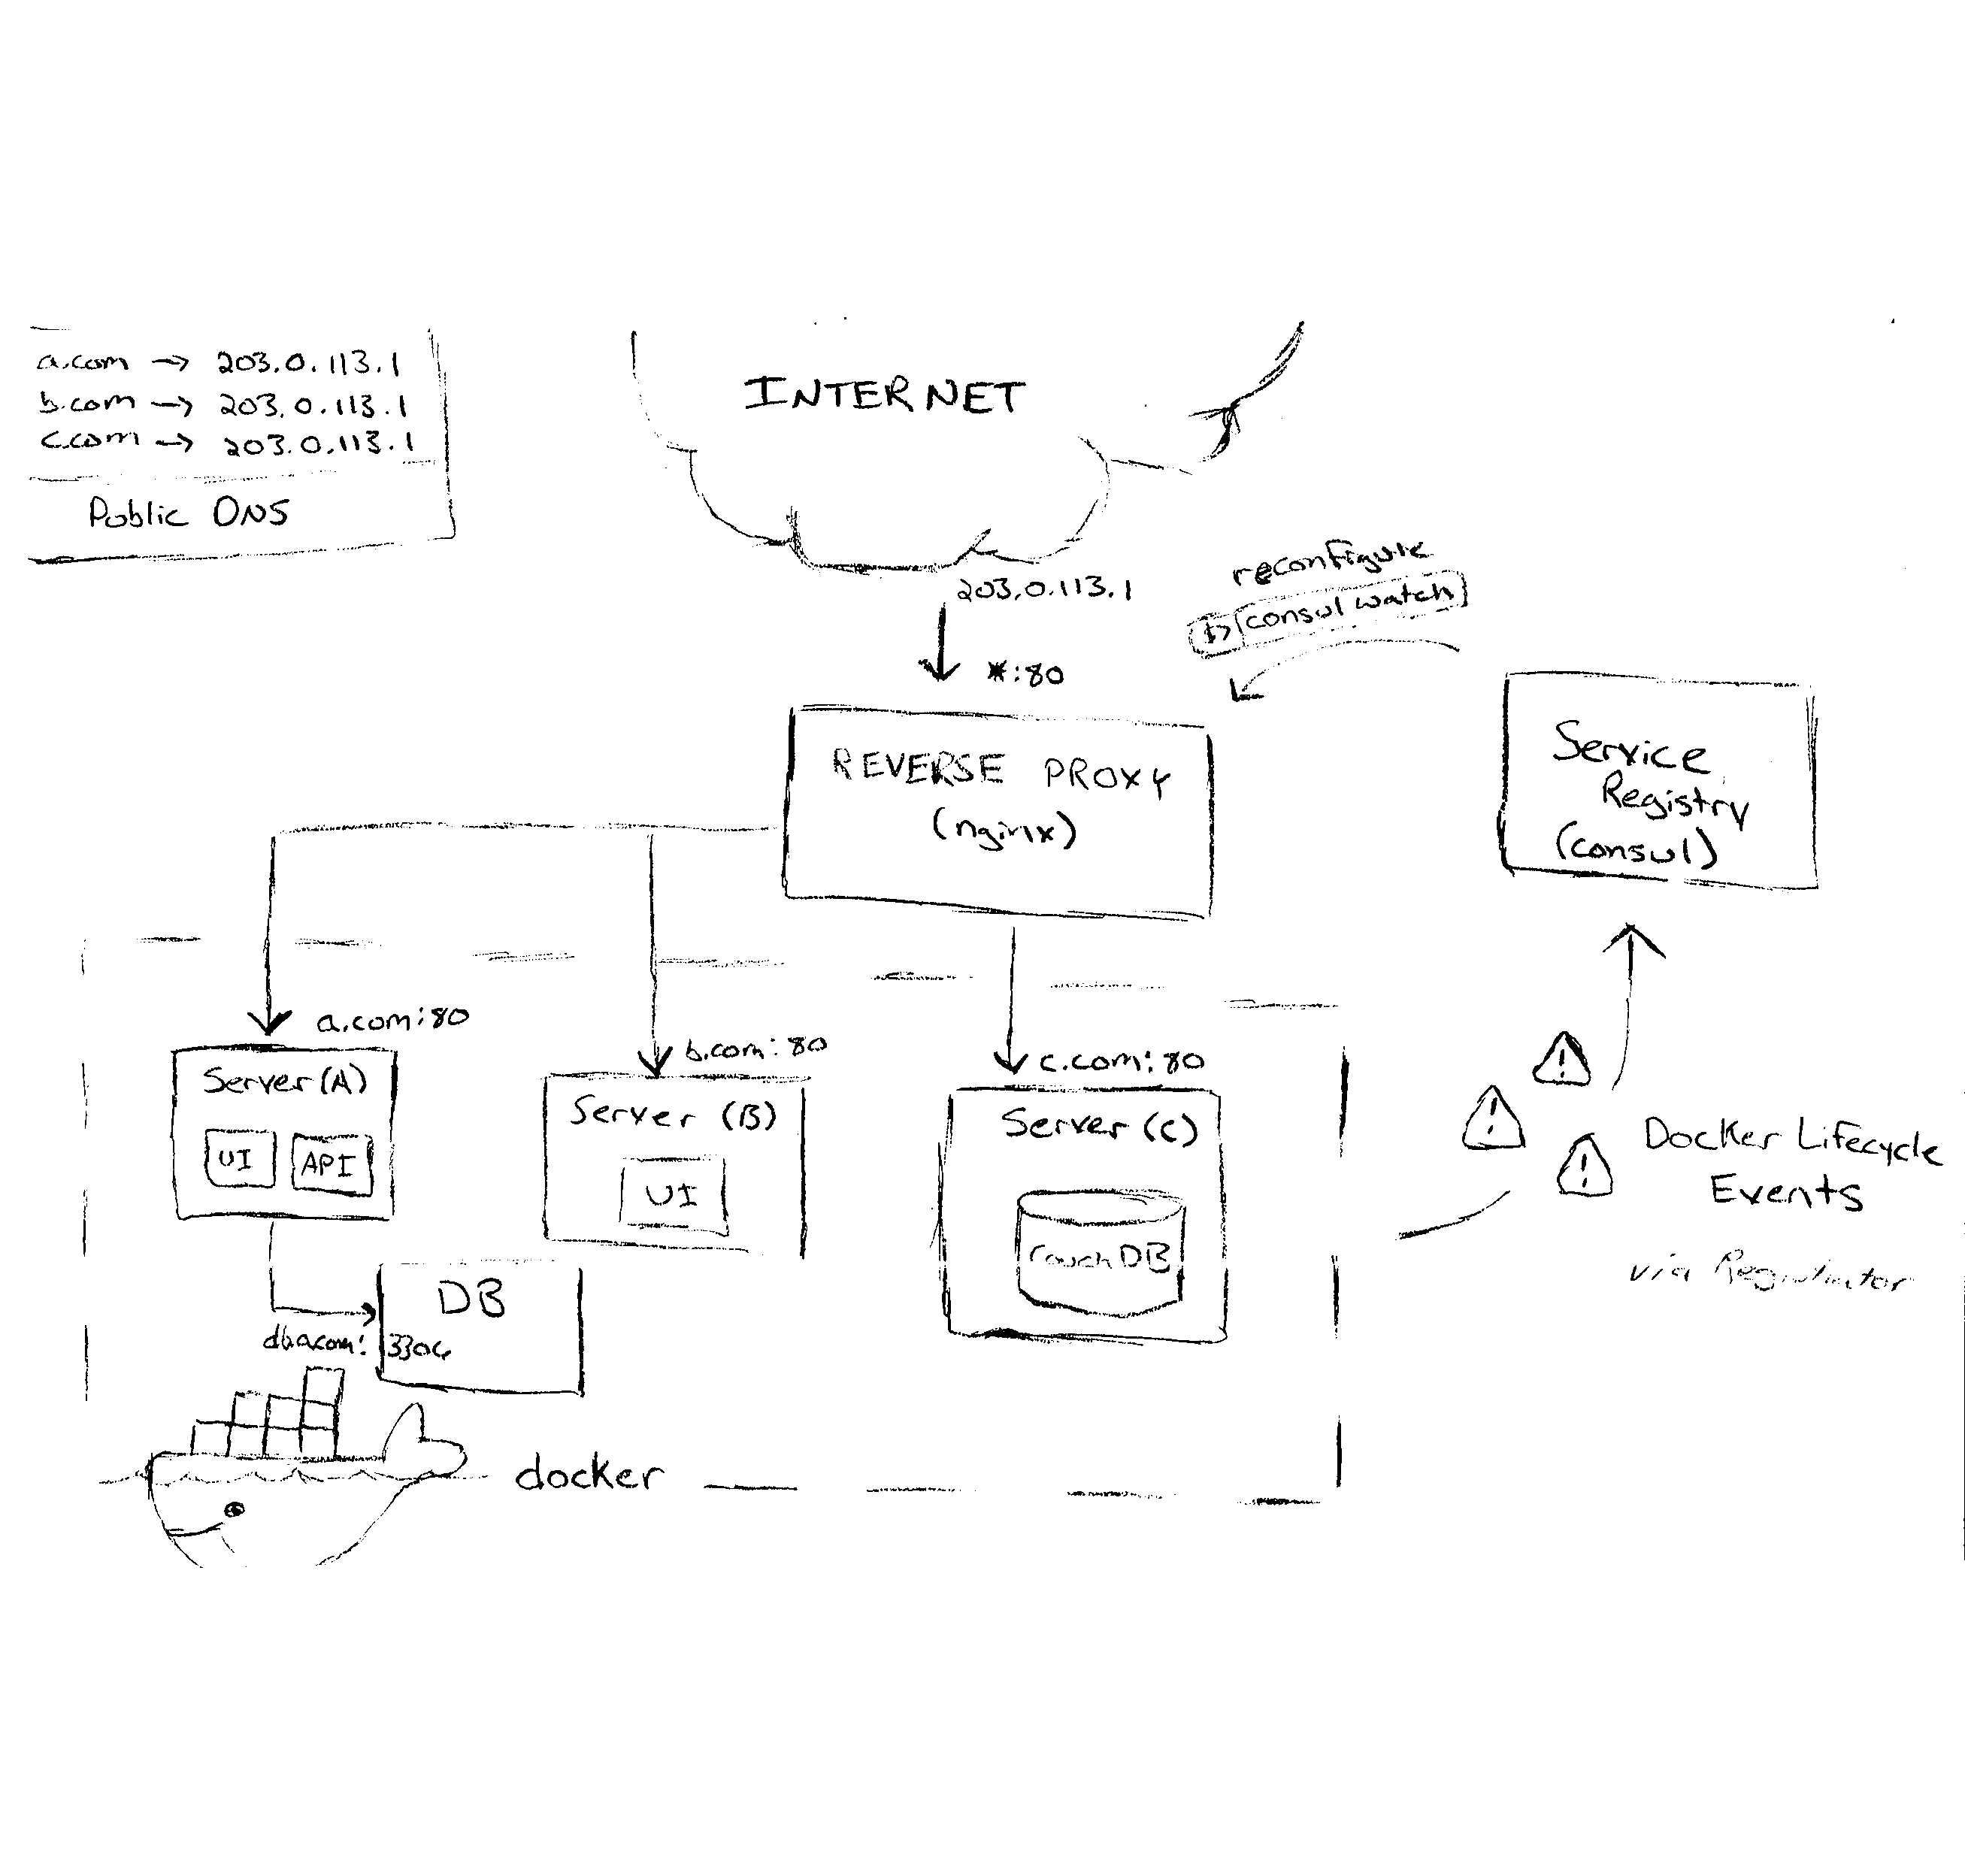 a.com → 203.0.113.1
b.com → 203.0.113.1
c.com → 203.0.113.1
Public DNS
INTERNET
203.0.113.1
reconfigure
consul watch
*:80
REVERSE PROXY
(nginx)
Service
Registry
(consul)
a.com:80
b.com:80
c.com:80
Server (A)
UI
API
Server (B)
UI
Server (C)
couchDB
DB
db.a.com: 3306
Docker Lifecycle
Events
via Registrator
docker